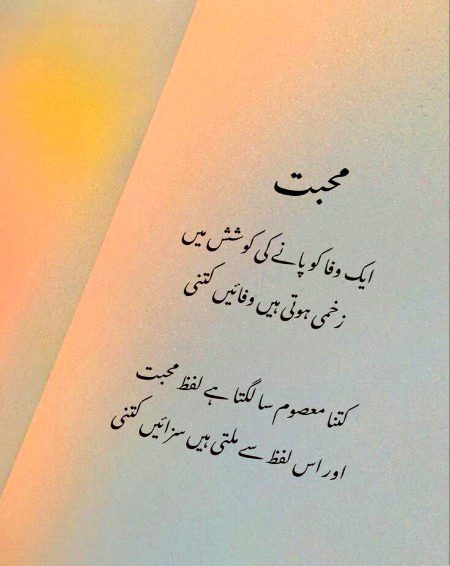 محبت
ایک وفا کو پانے کی کوشش میں
زخمی ہوتی ہیں وفائیں کتنی
کتنا معصوم سا لگتا ہے لفظ محبت
اور اس لفظ سے ملتی ہیں سزائیں کتنی